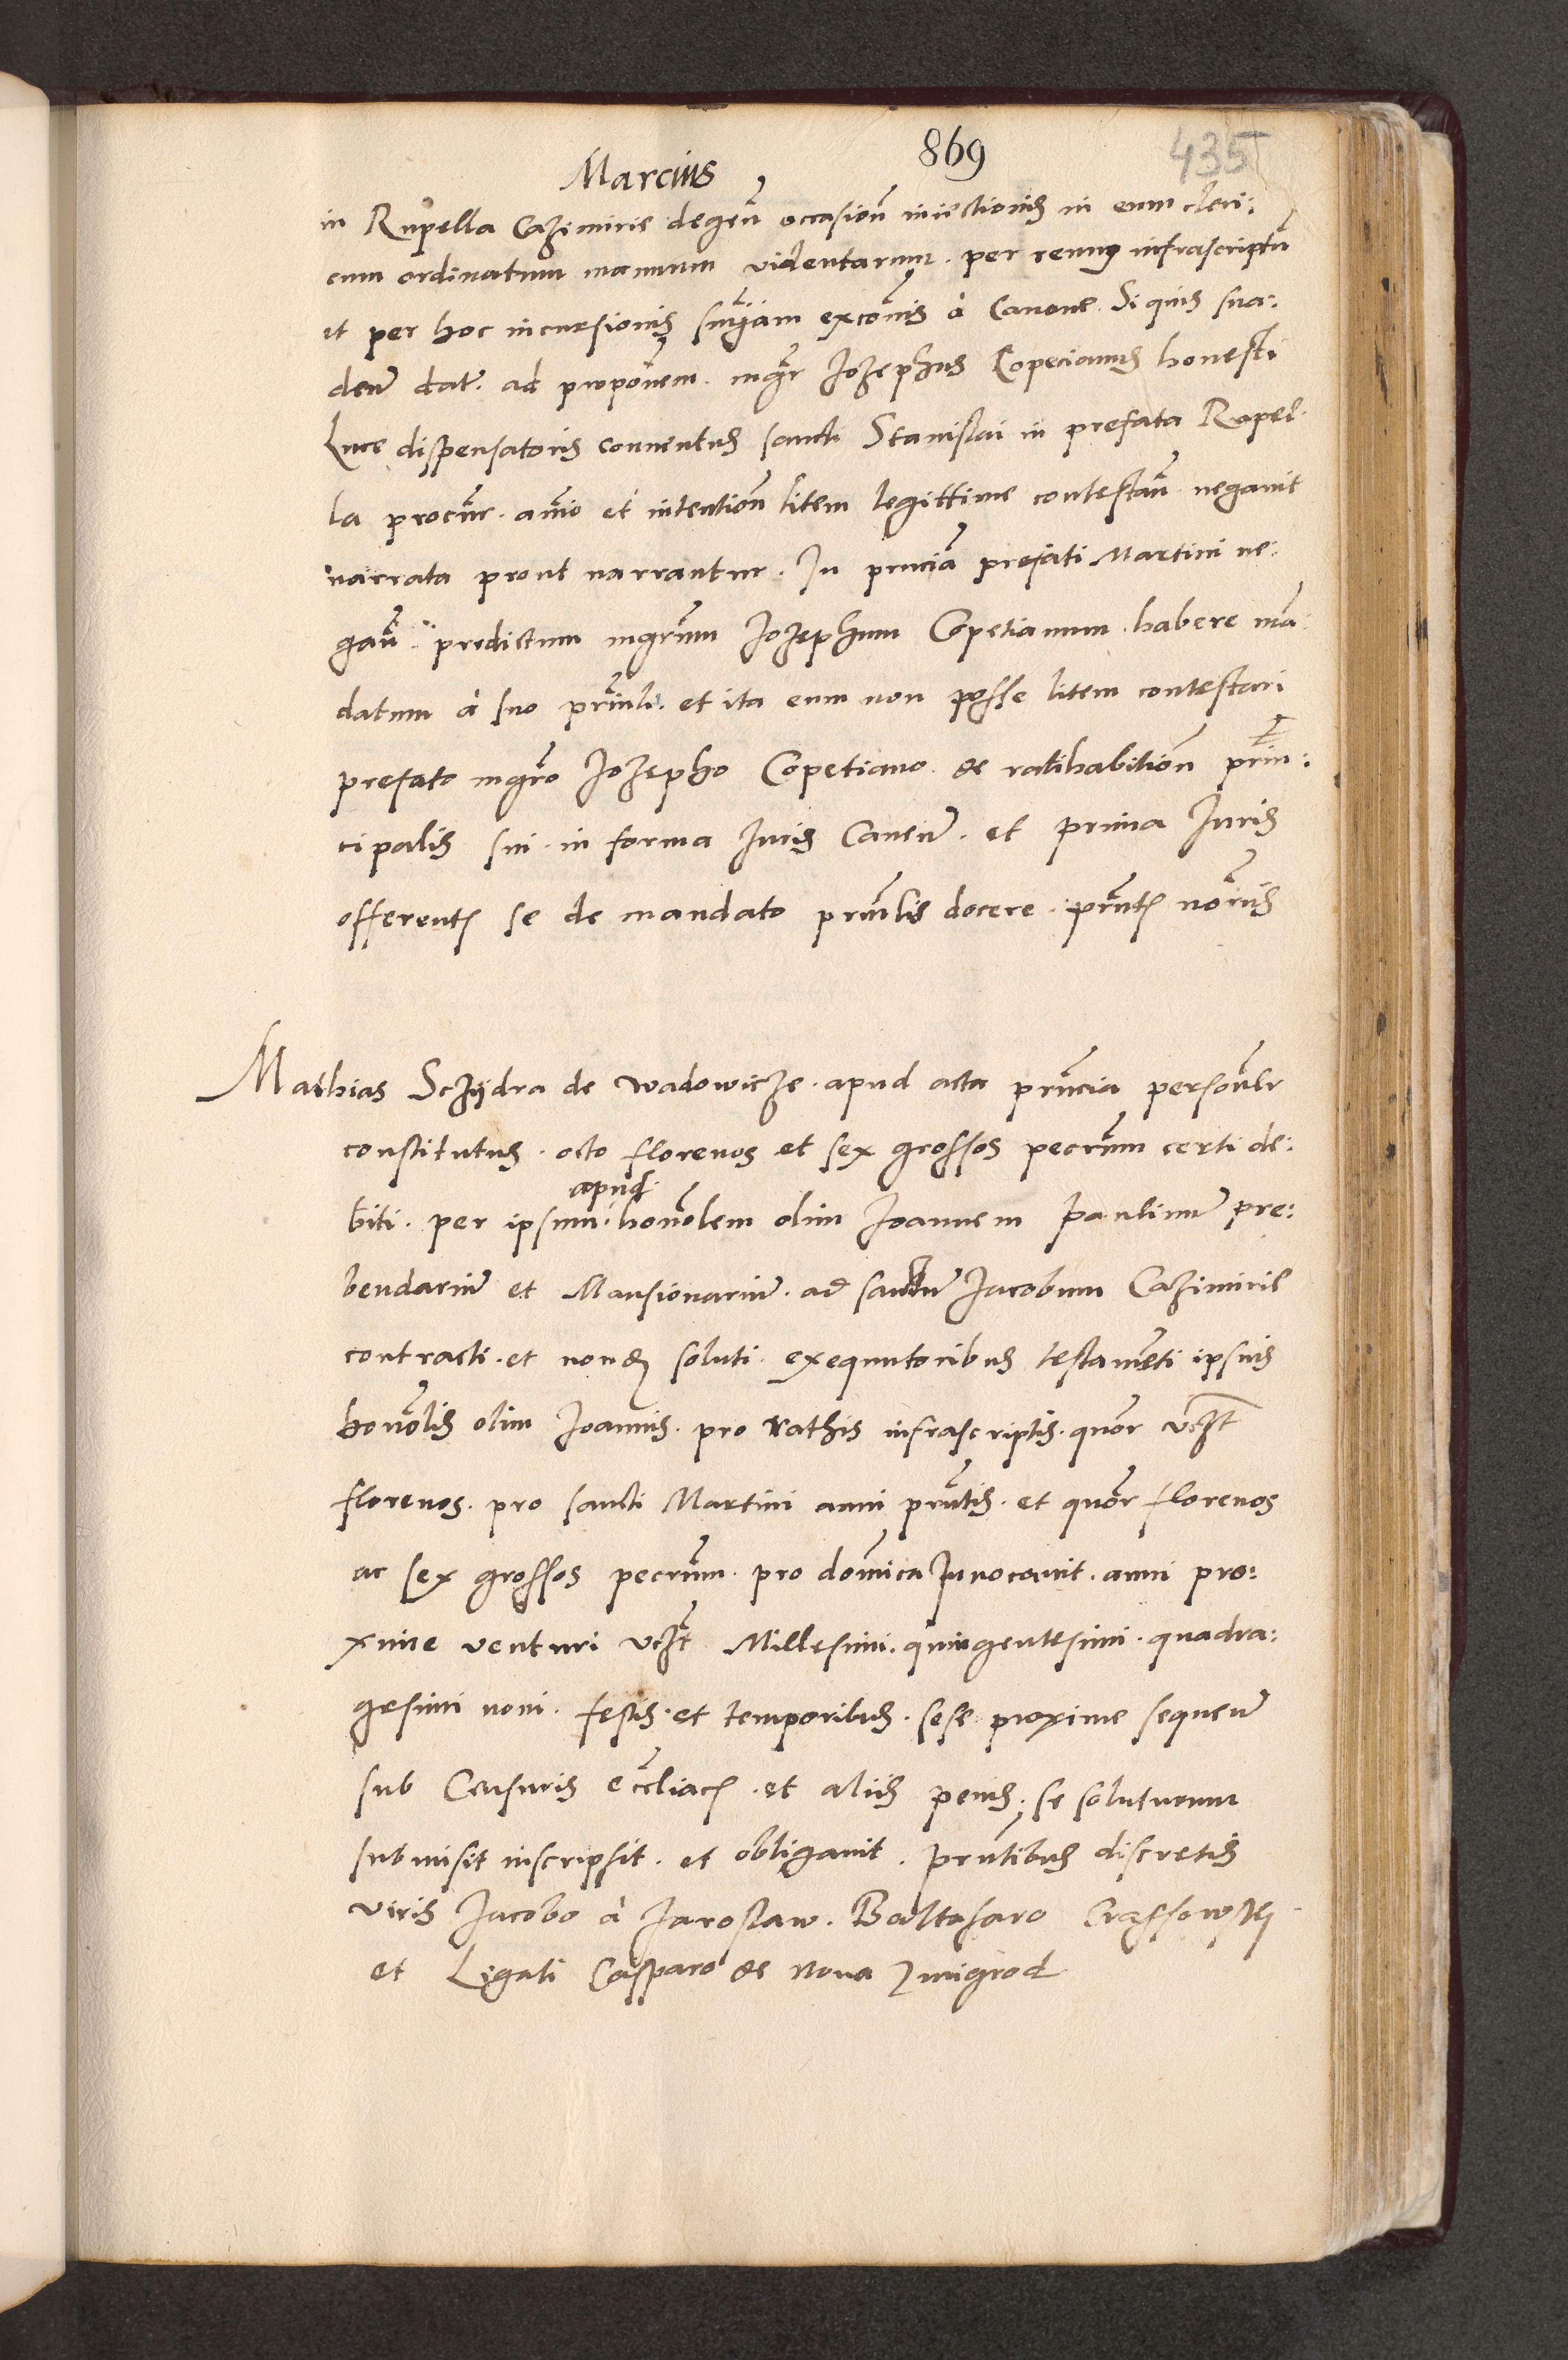 869
435
Marcius
in Rupella Cazimirie degeñ occasioñ iniectionis in eum cleri:
cum ordinatum manuum violentarum . per reum infrascriptũ
et per hoc incursionis snĩam excõnis à Canone Si quis sua:
deñ dat. ad propõnem . mgr Jozephus Copecianus honesti
Luce dispensatoris conuentus sancti Stanislai in prefata Rupel
la procur . aĩo et intentioñ litem legittime contestañ negauit
narrata prout narrantur . In pñcia prefati Martini ne:
gañ . predictum mgrũm Jozephum Copetianum habere mã
datum à suo prinli . et ita eum non posse litem contestari
prefato mgrõ Jozepho Copetiano de ratihabitioñ prin:
cipalis sui in forma Juris Caueñ . et prima Juris
offerents se de mandato prinlis docere . pñts norijs
Mathias Sczÿdra de Wadowicze . apud acta pñcia persoñlr
constitutus . octo florenos et sex grossos pecũrum certi de:
biti . per ipsum apud honõlem olim Joannem Paulinũ pre:
bendariũ et Mansionariũ . ad sanctũ Jacobum Cazimirie
contracti . et nondum soluti . exequutoribus testamẽti ipsius
honõlis olim Joannis . pro rathis infrascriptis . quõr vczt
florenos . pro sancti Martini anni pñtis . et quõr florenos
ac sex grossos pecũrum . pro domĩca Inuocauit . anni pro:
xime venturi vczt Millesimi . quingentesimi . quadra:
gesimi noni . festis . et temporibus . sese proxime sequeñ
sub Censuris ecclĩacs . et alijs penis . se soluturum
submisit inscripsit . et obligauit . pñtibus discretis
viris Jacobo à Jaroslaw . Baltasaro
et Ligati Casparo de Noua Zmigrod